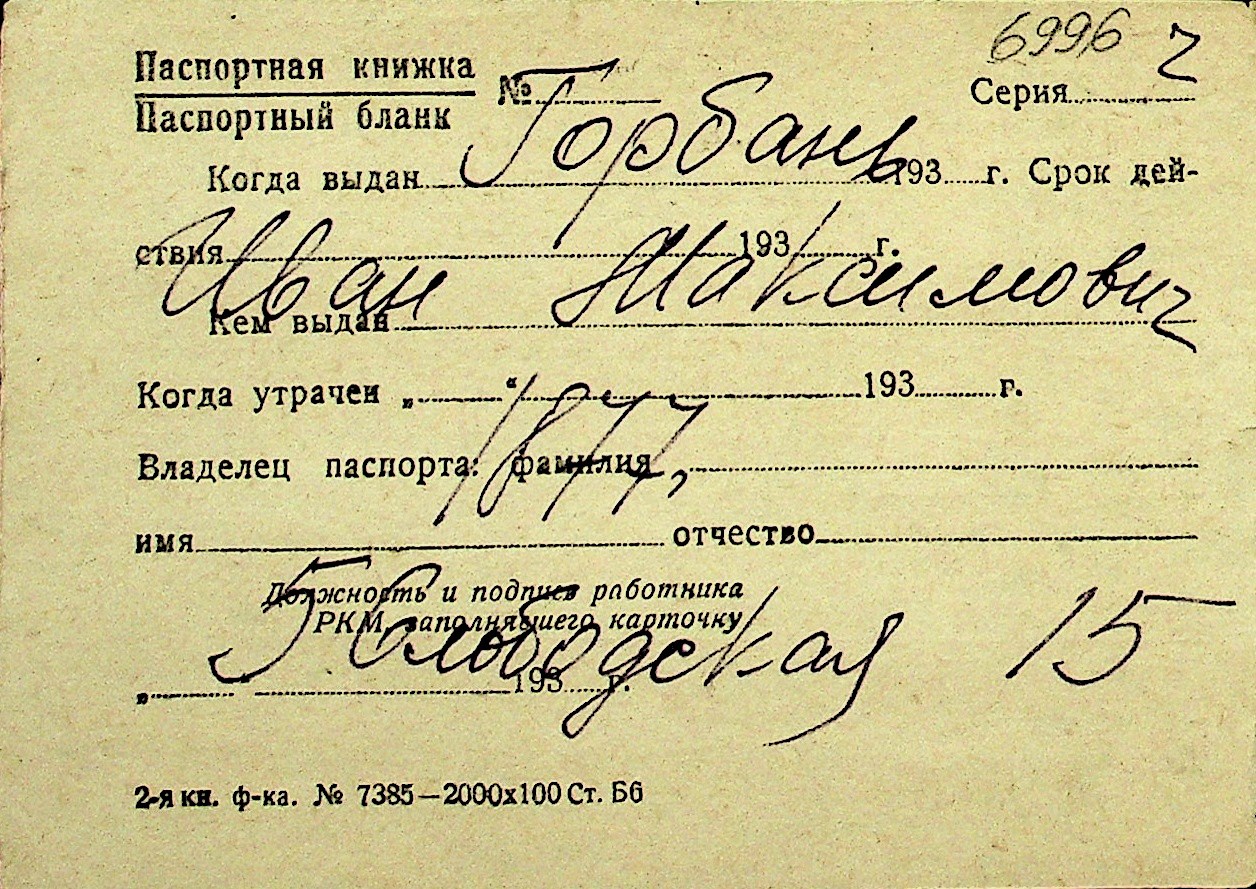 6996 ч
Паспортная книжка
Паспортный бланк
№ Серия
Горбань
Когда выдан 193 г. Срок дей-
ствия 193 г.
Иван Максимович
Кем выдан
Когда утрачен „ “ 193 г.
1877,
Владелец паспорта: фамилия
имя отчество
Должность и подпись работника
РКМ, заполнявшего карточку
Слободская 15
„ “ 193 г.
2-я кн. ф-ка. № 7385—2000х100 Ст. Б6